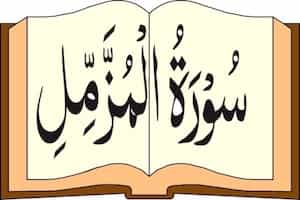 سُورَةُ الْمُزَّمِّلِ